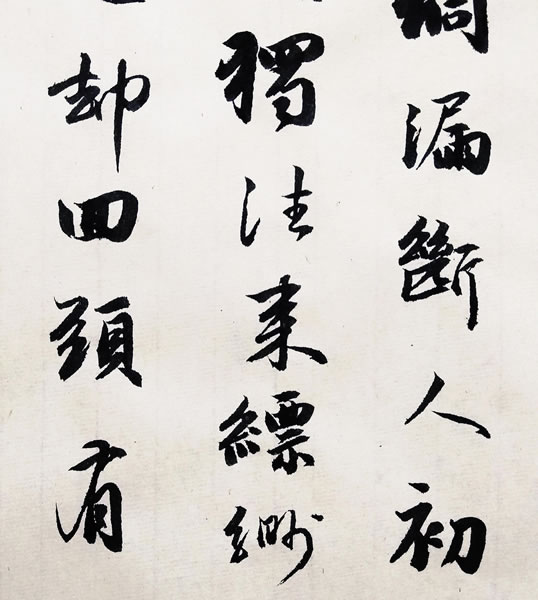 桐漏斷人初
獨往来縹緲
却回頭有